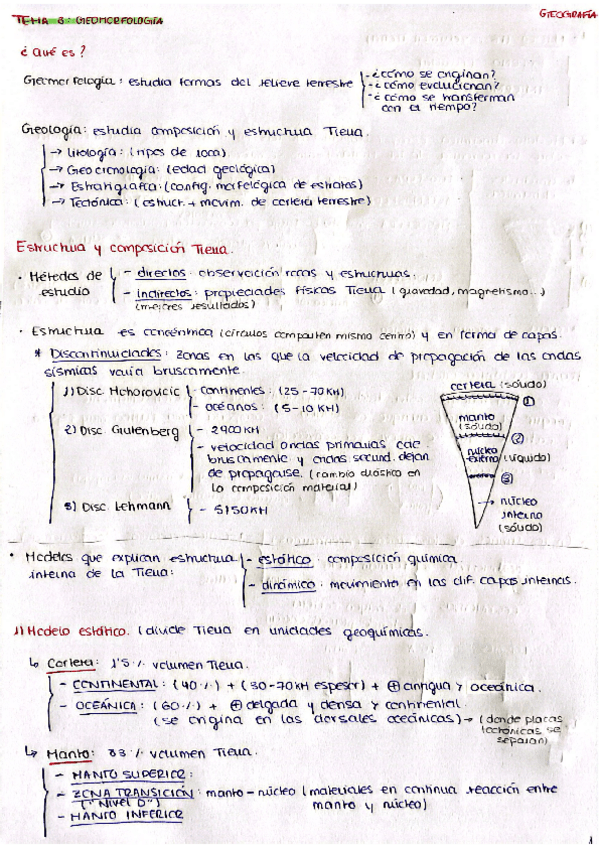 TEMA 8: GEOMORFOLOGÍA
GEOGRAFÍA
¿Qué es?
Geomorfología: estudia formas del relieve terrestre
- ¿cómo se originan?
- ¿cómo evolucionan?
- ¿cómo se transforman con el tiempo?
Geología: estudia composición y estructura Tierra.
→ Litología: (tipos de roca)
→ Geocronología: (edad geológica)
→ Estratigrafía: (config. morfológica de estratos)
→ Tectónica: (estruct. + movim. de corteza terrestre)
Estructura y composición Tierra.
· Métodos de estudio
- directos: observación rocas y estructuras.
- indirectos: propiedades físicas Tierra (gravedad, magnetismo...)
(mejores resultados)
· Estructura es concéntrica (círculos comparten mismo centro) y en forma de capas.
* Discontinuidades: zonas en las que la velocidad de propagación de las ondas
sísmicas varía bruscamente.
1) Disc. Mohorovicic
- continentes: (25-70KM)
- océanos: (5-10KM)
2) Disc. Gutenberg
- 2900KM
- velocidad ondas primarias cae
bruscamente y ondas secund. dejan
de propagarse. (cambio drástico en
la composición material)
3) Disc. Lehmann
- 5150KM
corteza (sólido)
①
manto
(sólido)
②
núcleo
externo (líquido)
③
→ núcleo
interno
(sólido)
· Modelos que explican estructura
interna de la Tierra:
- estático: composición química
- dinámico: movimiento en las dif. capas internas.
1) Modelo estático. (divide Tierra en unidades geoquímicas.
↳ Corteza: 1'5% volumen Tierra.
- CONTINENTAL: (40%) + (30-70KM espesor) + ⊕ antigua y oceánica.
- OCEÁNICA: (60%) + ⊕ delgada y densa y continental.
(se origina en las dorsales oceánicas) → (donde placas
tectónicas se
separan)
↳ Manto: 83% volumen Tierra.
- MANTO SUPERIOR:
- ZONA TRANSICIÓN: manto-núcleo (materiales en continua reacción entre
("Nivel D")
manto y núcleo)
- MANTO INFERIOR
1